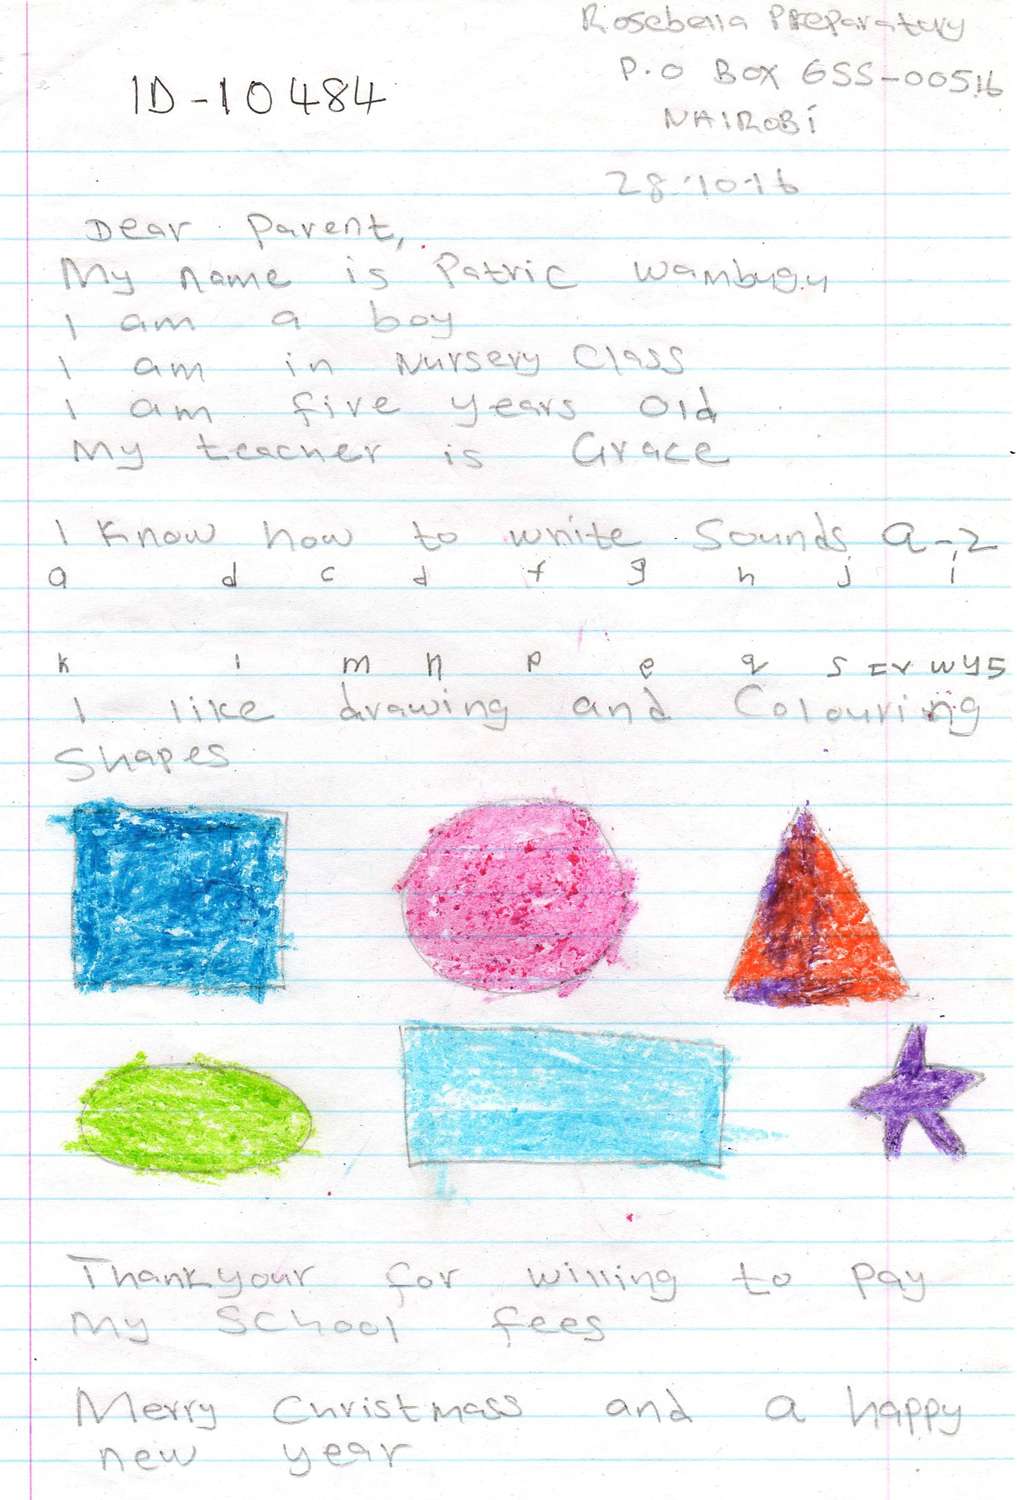 Rosebella Preparatory
P.O BOX 655-00516
ID-10484
NAIROBi
28.10.16
Dear Parent,
My name is Patric Wambugu
I am a boy
I am in Nursery Class
I am five years old
My teacher is Grace
I Know how to write Sounds a-z
a d c d f g h j i
k i m n p e q s r w y 5
I like drawing and Colouring
Shapes
Thankyour for willing to pay
my School fees
Merry Christmass and a happy
new year